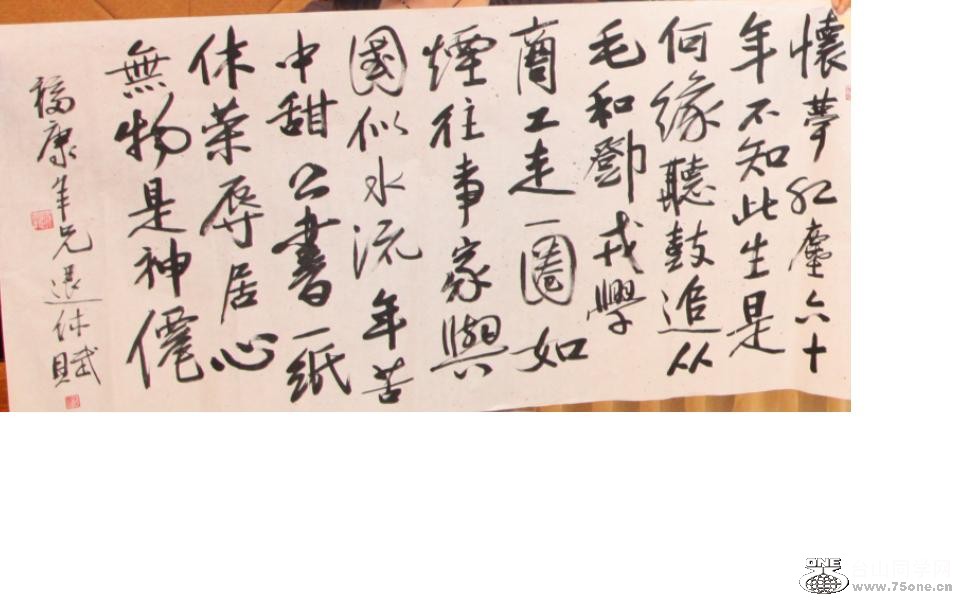 懷夢紅塵六十
年不知此生是
何緣聽鼓追从
毛和鄧戎學
商工走一圈如
煙往事家與
國似水流年苦
中甜公書一紙
休榮辱居心
無物是神僊
福康年兄退休賦
ONE
www.75one.cn